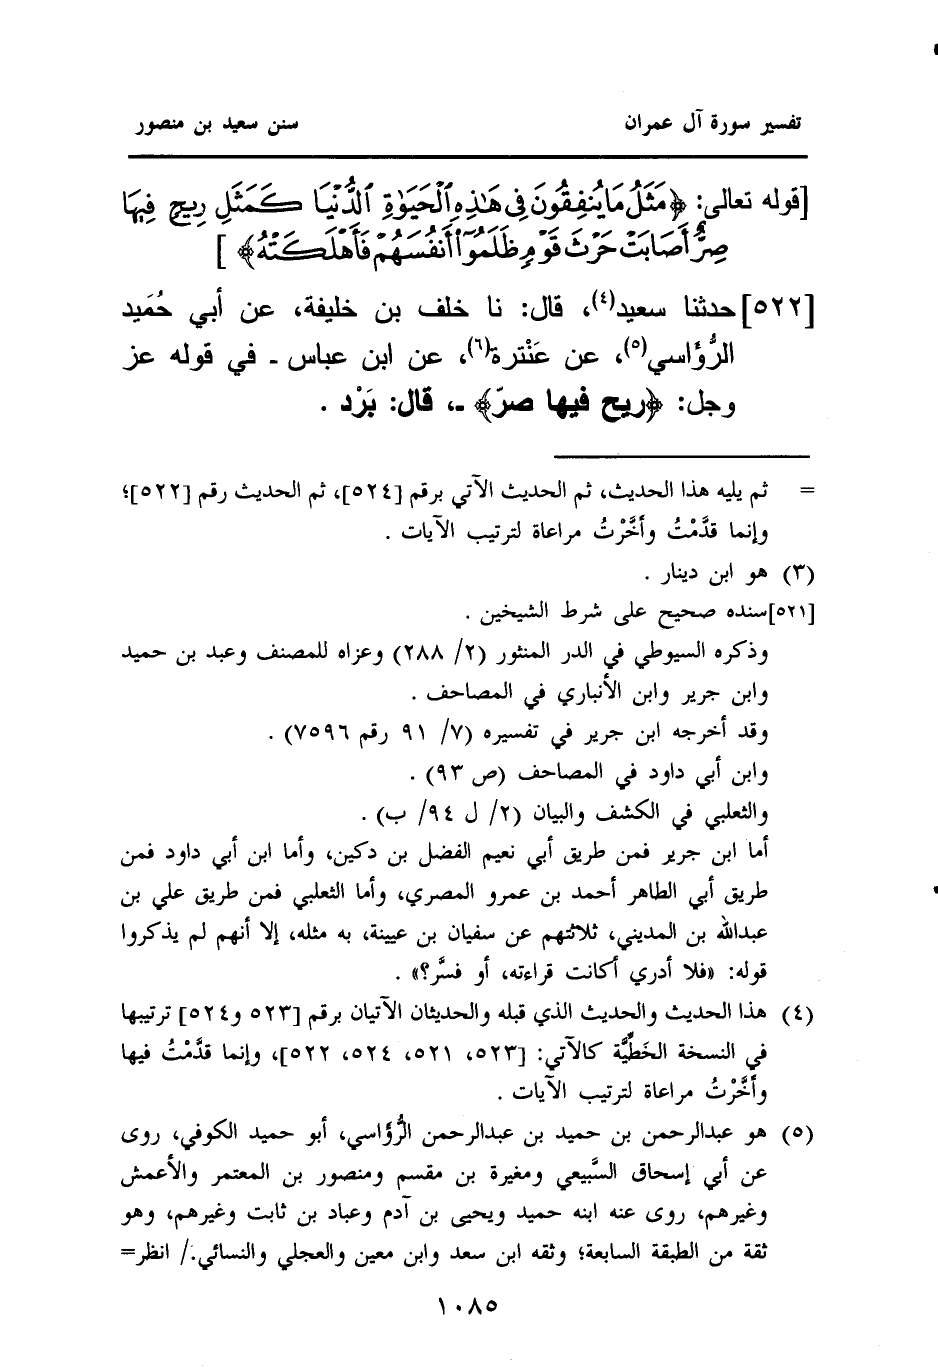 تفسير سورة آل عمران سنن سعيد بن منصور
[قوله تعالى: ﴿مَثَلُ مَا يُنفِقُونَ فِي هَـٰذِهِ ٱلْحَيَوٰةِ ٱلدُّنْيَا كَمَثَلِ رِيحٍ فِيهَا
صِرٌّ أَصَابَتْ حَرْثَ قَوْمٍ ظَلَمُوٓا۟ أَنفُسَهُمْ فَأَهْلَكَتْهُ﴾ ]
[٥٢٢] حدثنا سعيد(٤)، قال: نا خلف بن خليفة، عن أبي حُمَيد
الرُّؤَاسي(٥)، عن عَنْترة(٦)، عن ابن عباس ـ في قوله عز
وجل: ﴿ريح فيها صرّ﴾ ـ، قال: بَرْد .
= ثم يليه هذا الحديث، ثم الحديث الآتي برقم [٥٢٤]، ثم الحديث رقم [٥٢٢]؛
وإنما قدَّمْتُ وأَخَّرْتُ مراعاة لترتيب الآيات .
(٣) هو ابن دينار .
[٥٢١] سنده صحيح على شرط الشيخين .
وذكره السيوطي في الدر المنثور (٢/ ٢٨٨) وعزاه للمصنف وعبد بن حميد
وابن جرير وابن الأنباري في المصاحف .
وقد أخرجه ابن جرير في تفسيره (٧/ ٩١ رقم ٧٥٩٦) .
وابن أبي داود في المصاحف (ص ٩٣) .
والثعلبي في الكشف والبيان (٢/ ل ٩٤/ ب) .
أما ابن جرير فمن طريق أبي نعيم الفضل بن دكين، وأما ابن أبي داود فمن
طريق أبي الطاهر أحمد بن عمرو المصري، وأما الثعلبي فمن طريق علي بن
عبدالله بن المديني، ثلاثتهم عن سفيان بن عيينة، به مثله، إلا أنهم لم يذكروا
قوله: «فلا أدري أكانت قراءته، أو فسَّر؟» .
(٤) هذا الحديث والحديث الذي قبله والحديثان الآتيان برقم [٥٢٣ و٥٢٤] ترتيبها
في النسخة الخَطِّيَّة كالآتي: [٥٢٣، ٥٢١، ٥٢٤، ٥٢٢]، وإنما قدَّمْتُ فيها
وأَخَّرْتُ مراعاة لترتيب الآيات .
(٥) هو عبدالرحمن بن حميد بن عبدالرحمن الرُّؤَاسي، أبو حميد الكوفي، روى
عن أبي إسحاق السَّبيعي ومغيرة بن مقسم ومنصور بن المعتمر والأعمش
وغيرهم، روى عنه ابنه حميد ويحيى بن آدم وعباد بن ثابت وغيرهم، وهو
ثقة من الطبقة السابعة؛ وثقه ابن سعد وابن معين والعجلي والنسائي./ انظر=
١٠٨٥